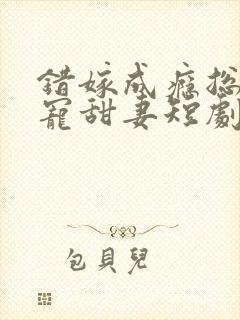 錯嫁成癮總
寵甜妻短劇
包貝兒